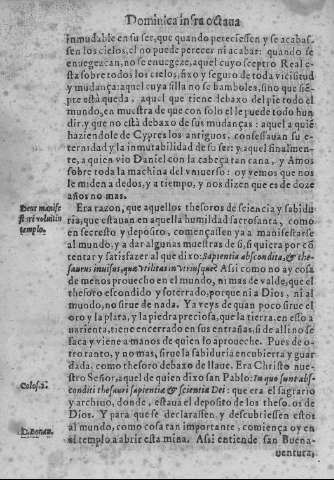 Dominica infra octaua
inmudable en su ser, que quando pereciessen y se acabas-
sen los cielos, el no puede perecer ni acabar: quando se
enuegezcan, no se enuegeze, aquel cuyo sceptro Real e-
sta sobre todos los cielos, fixo y seguro de toda vicisitud
y mudança: aquel cuya silla no se bambolea, sino que siẽ-
pre està queda, aquel que tiene debaxo del pie todo el
mundo, en muestra de que con solo el le puede todo hun
dir, y que no està debaxo de sus mudanças: aquel a quiẽ
haziendole de Cypres los antiguos, confessauan su e-
ternidad y la inmutabilidad de su ser: y aquel finalmen-
te, a quien vio Daniel con la cabeça tan cana, y Amos
sobre toda la machina del vniuerso: oy vemos que nos
le miden a dedos, y a tiempo, y nos dizen que es de doze
años no mas.
Era razon, que aquellos thesoros de sciencia y sabidu
ria, que estauan en aquella humildad sacrosanta, como
en secresto y deposito, començassen ya a manifestarse
al mundo, y a dar algunas muestras de si, si quiera por cõ
tentar y satisfazer al que dixo: Sapientia abscondita, & the-
saurus inuisus, quæ vtilitas in vtrisque? Assi como no ay cosa
de menos prouecho en el mundo, ni mas de valde, que el
thesoro escondido y soterrado, porque ni a Dios, ni al
mundo, no sirue de nada. Ya veys de quan poco sirue el
oro y la plata, y la piedra preciosa, que la tierra, en esso a
uarienta, tiene encerrado en sus entrañas, si de alli no se
saca y viene a manos de quien lo aproueche. Pues de o-
tro tanto, y no mas, sirue la sabiduria encubierta y guar
dada, como thesoro debaxo de llaue. Era Christo nue-
stro Señor, aquel de quien dixo san Pablo: In quo sunt abs-
conditi thesauri sapientiæ & scientiæ Dei: que era el sagrario
y archiuo, donde, estaua el deposito de los thesoros de
Dios. Y para que se declarassen, y descubriessen estos
al mundo, como cosa tan importante, comiença oy en
el templo a abrir esta mina. Assi entiende san Buena-
uentura,
Deus manife
templo.
Colos. 2.
D. Bonau.